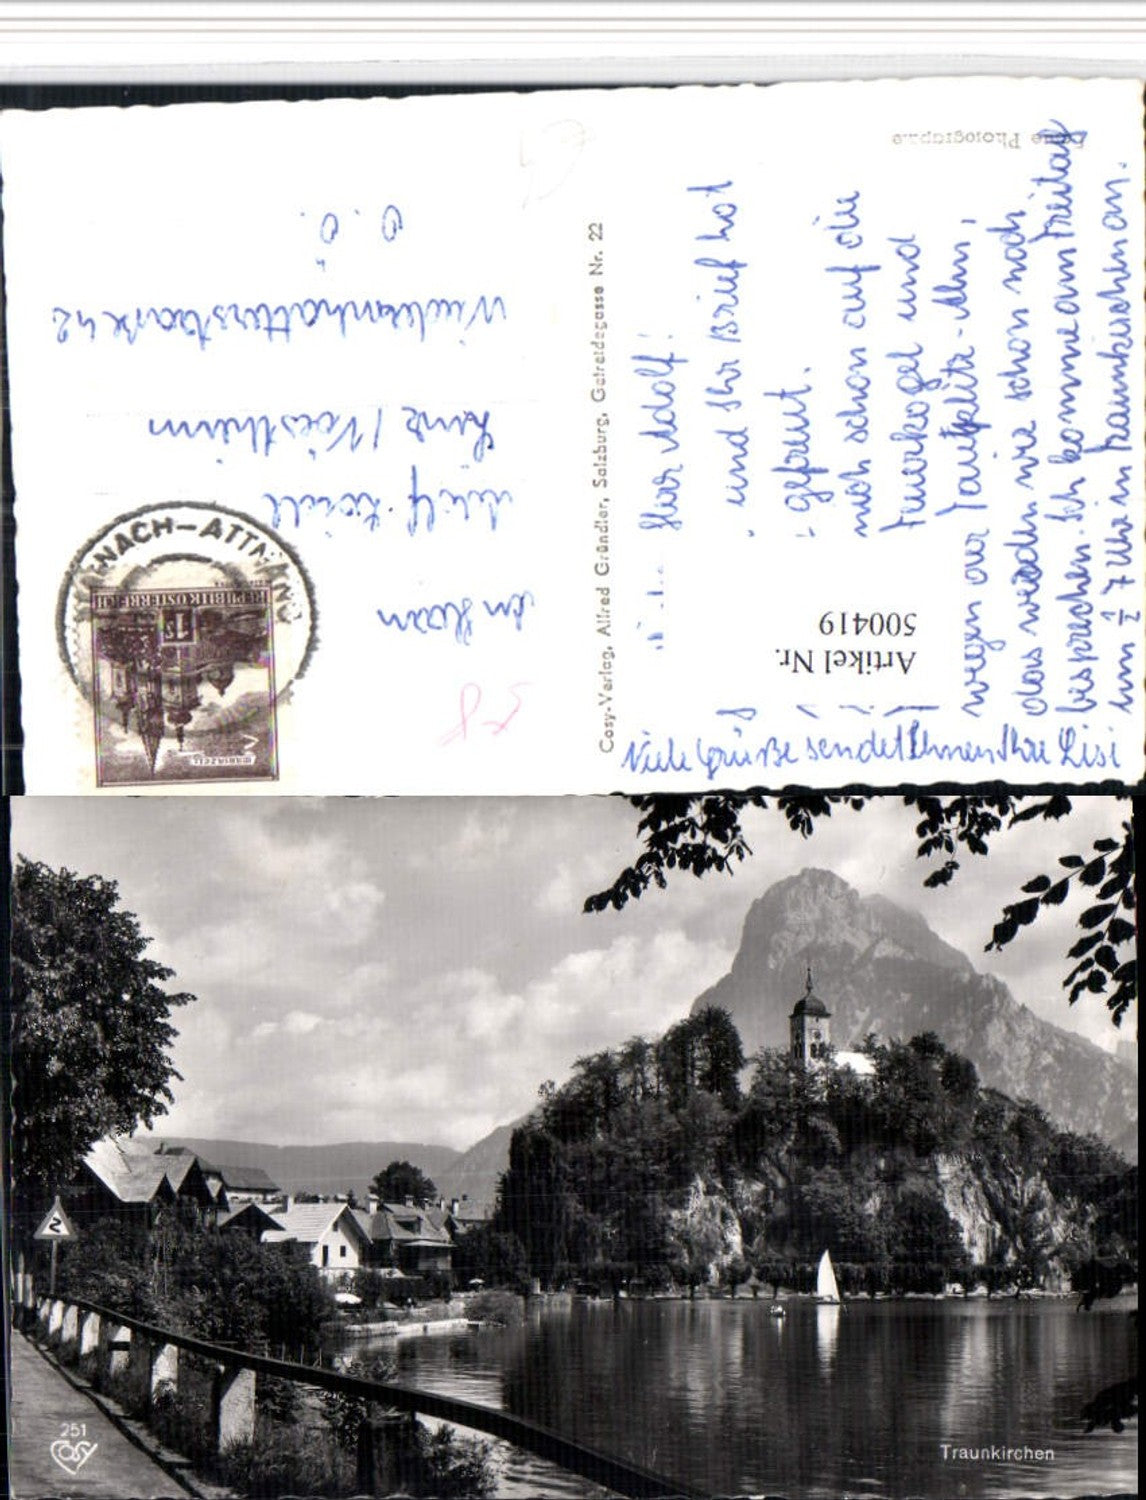 Echte Photographie
Herr Adolf!
und Ihr Brief hat
gefreut.
mich schon auf die
Feuerkogel und
wegen der Tauplitz-Alm,
das werden wir schon noch
besprechen. Ich komme am Freitag
um ½ 7 Uhr in Traunkirchen an.
Viele Grüße sendet Ihnen Ihre Lisi
Artikel Nr.
500419
Cosy-Verlag, Alfred Gründler, Salzburg, Getreidegasse Nr. 22
An Herrn
Adolf
Linz /
42
O.Ö.
NACH-ATTNANG
REPUBLIK ÖSTERREICH
MARIAZELL
251
COSY
Traunkirchen